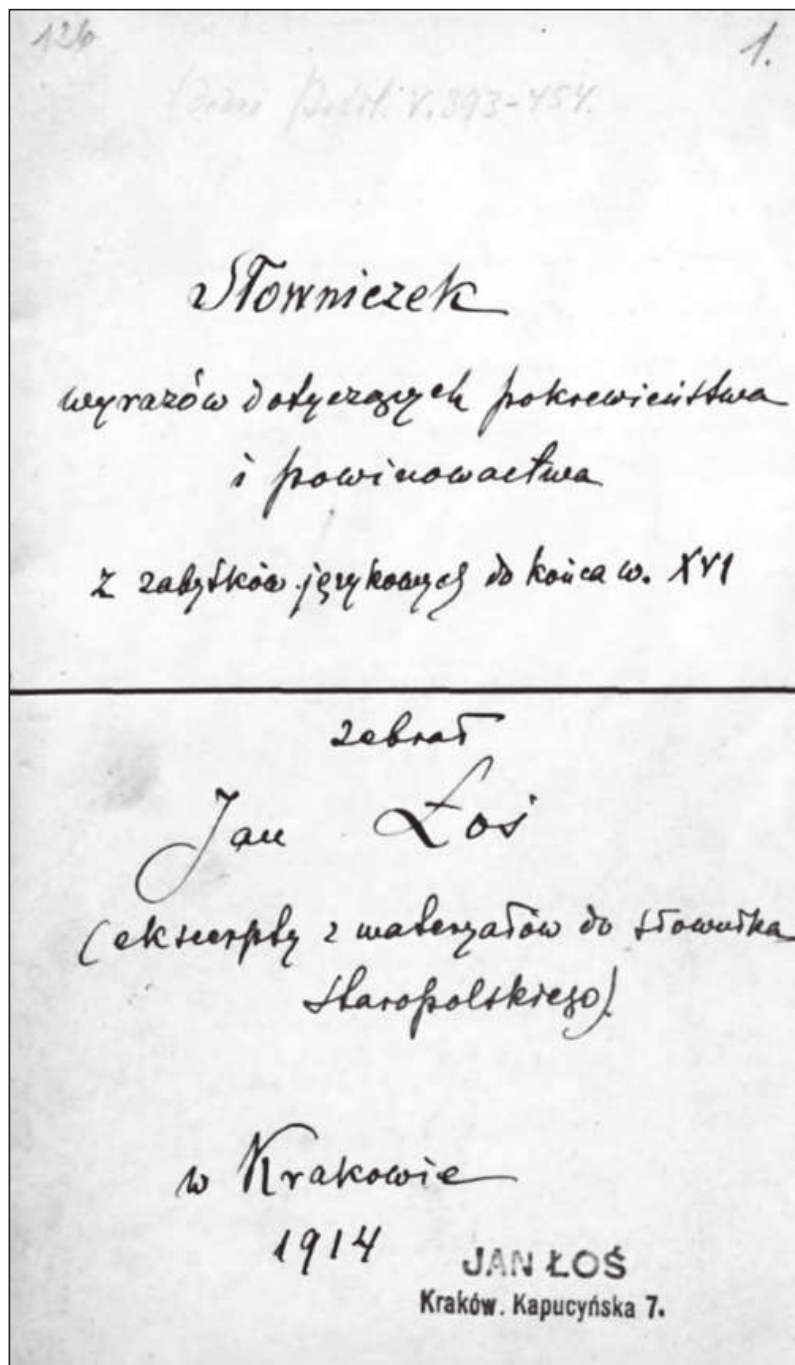 126
1.
V. 393-454.
Słowniczek
wyrazów dotyczących pokrewieństwa
i powinowactwa
z zabytków językowych do końca w. XVI
zebrał
Jan Łoś
(ekscerpty z materyałów do słownika
staropolskiego).
w Krakowie
1914
JAN ŁOŚ
Kraków. Kapucyńska 7.